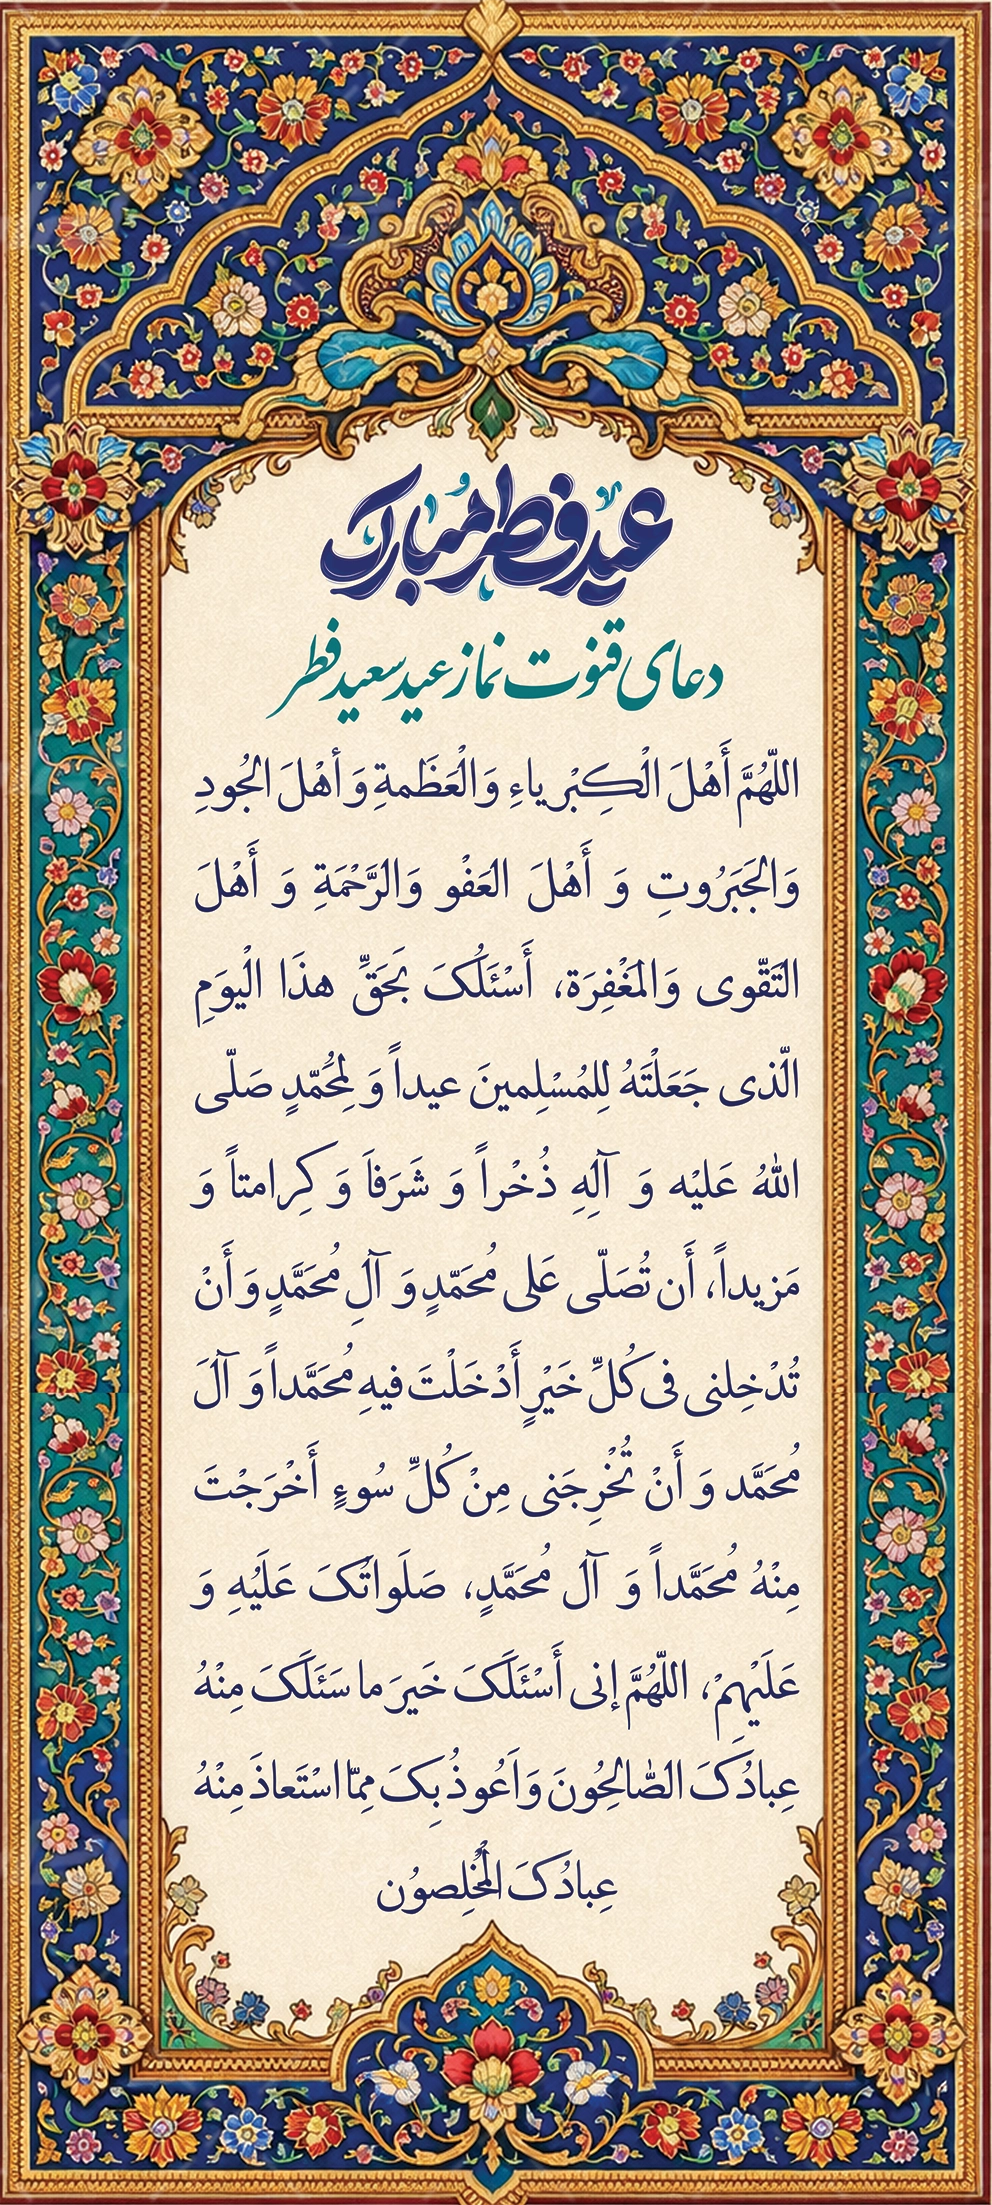 عید فطر مبارک
دعای قنوت نماز عید سعید فطر
اللّهُمَّ أَهْلَ الْكِبْرياءِ وَالْعَظَمةِ وَ أهْلَ الجُودِ
وَالجَبَرُوتِ وَ أَهْلَ العَفْو وَالرَّحْمَةِ وَ أَهْلَ
التَقّوی وَالمَغْفِرَة، أَسْئَلُکَ بَحَقِّ هذَا الْيَومِ
الّذی جَعَلْتَهُ لِلمُسْلِمينَ عيداً وَ لِمُحَمّدٍ صَلّی
اللهُ عَليْه وَ آلِهِ ذُخْراً وَ شَرَفاَ وَ كِرامتاً وَ
مَزيداً، أَن تُصَلّی عَلی مُحَمّدٍ وَ آلِ مُحَمَّدٍ وَ أَنْ
تُدْخِلنی فی كُلِّ خَيْرٍ أَدْخَلْتَ فيهِ مُحَمَّداً وَ آلَ
مُحَمَّد وَ أَنْ تُخْرِجَنی مِنْ كُلِّ سُوءٍ أَخْرَجْتَ
مِنْهُ مُحَمَّداً وَ آلَ مُحَمَّدٍ، صَلَواتُکَ عَلَيْهِ وَ
عَلَيْهِمْ، اللّهُمَّ إنی أَسْئَلَکَ خَيرَ ما سَئَلَکَ مِنْهُ
عِبادُکَ الصّالِحُونَ وَ اَعُوذُ بِکَ مِمّا اسْتَعاذَ مِنْهُ
عِبادُکَ الْمُخلِصوُن